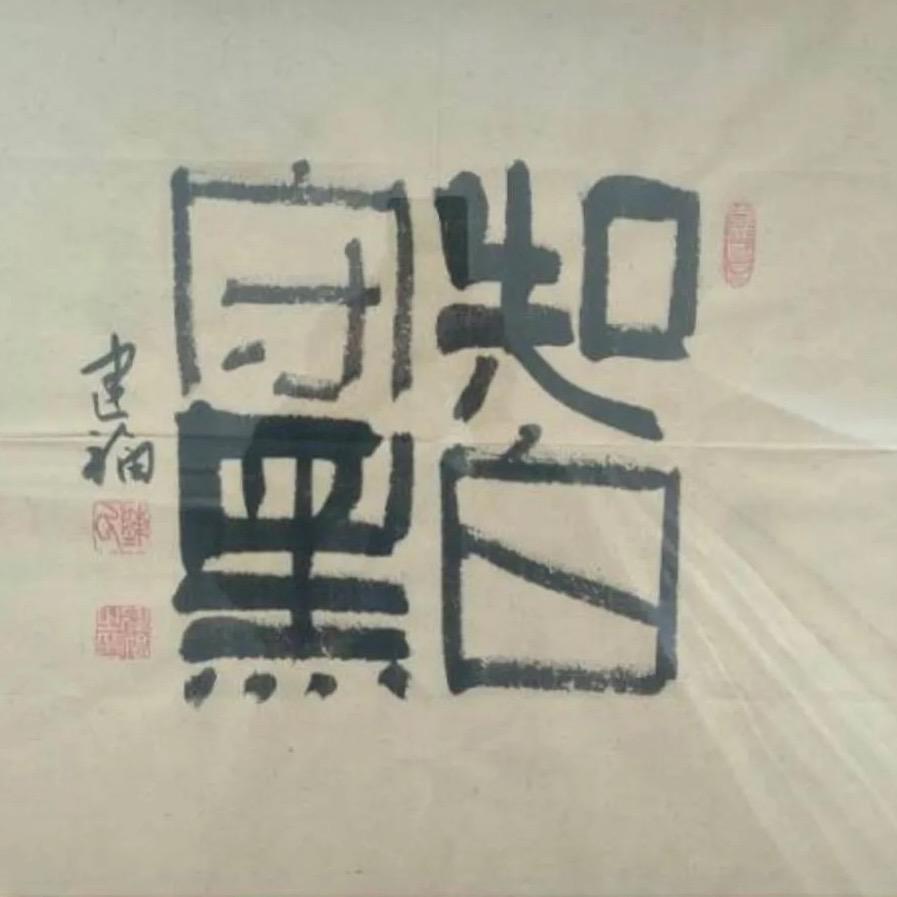 知白
守黑
建福